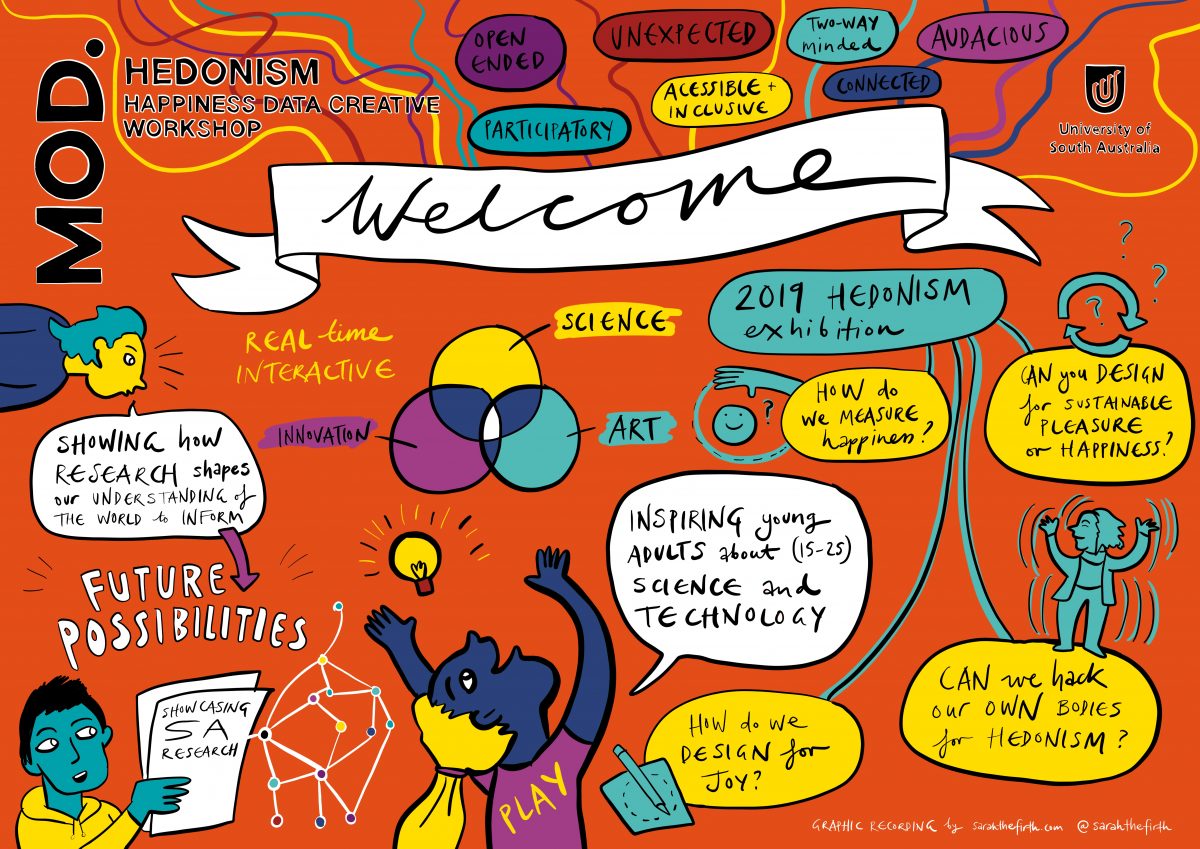 MOD.
HEDONISM
HAPPINESS DATA CREATIVE
WORKSHOP
OPEN
ENDED
UNEXPECTED
TWO-WAY
minded
AUDACIOUS
ACESSIBLE +
INCLUSIVE
CONNECTED
PARTICIPATORY
University of
South Australia
Welcome
REAL time
INTERACTIVE
SCIENCE
INNOVATION
ART
2019 HEDONISM
exhibition
?
?
?
HOW do
we MEASURE
happiness?
?
CAN you DESIGN
for SUSTAINABLE
PLEASURE
or HAPPINESS?
SHOWING how
RESEARCH shapes
our UNDERSTANDING of
THE WORLD to INFORM
FUTURE
POSSIBILITIES
INSPIRING young
ADULTS about (15-25)
SCIENCE and
TECHNOLOGY
SHOWCASING
SA
RESEARCH
PLAY
HOW do we
DESIGN for
JOY?
CAN we hack
our OWN BODIES
for HEDONISM?
GRAPHIC RECORDING by sarahthefirth.com @sarahthefirth